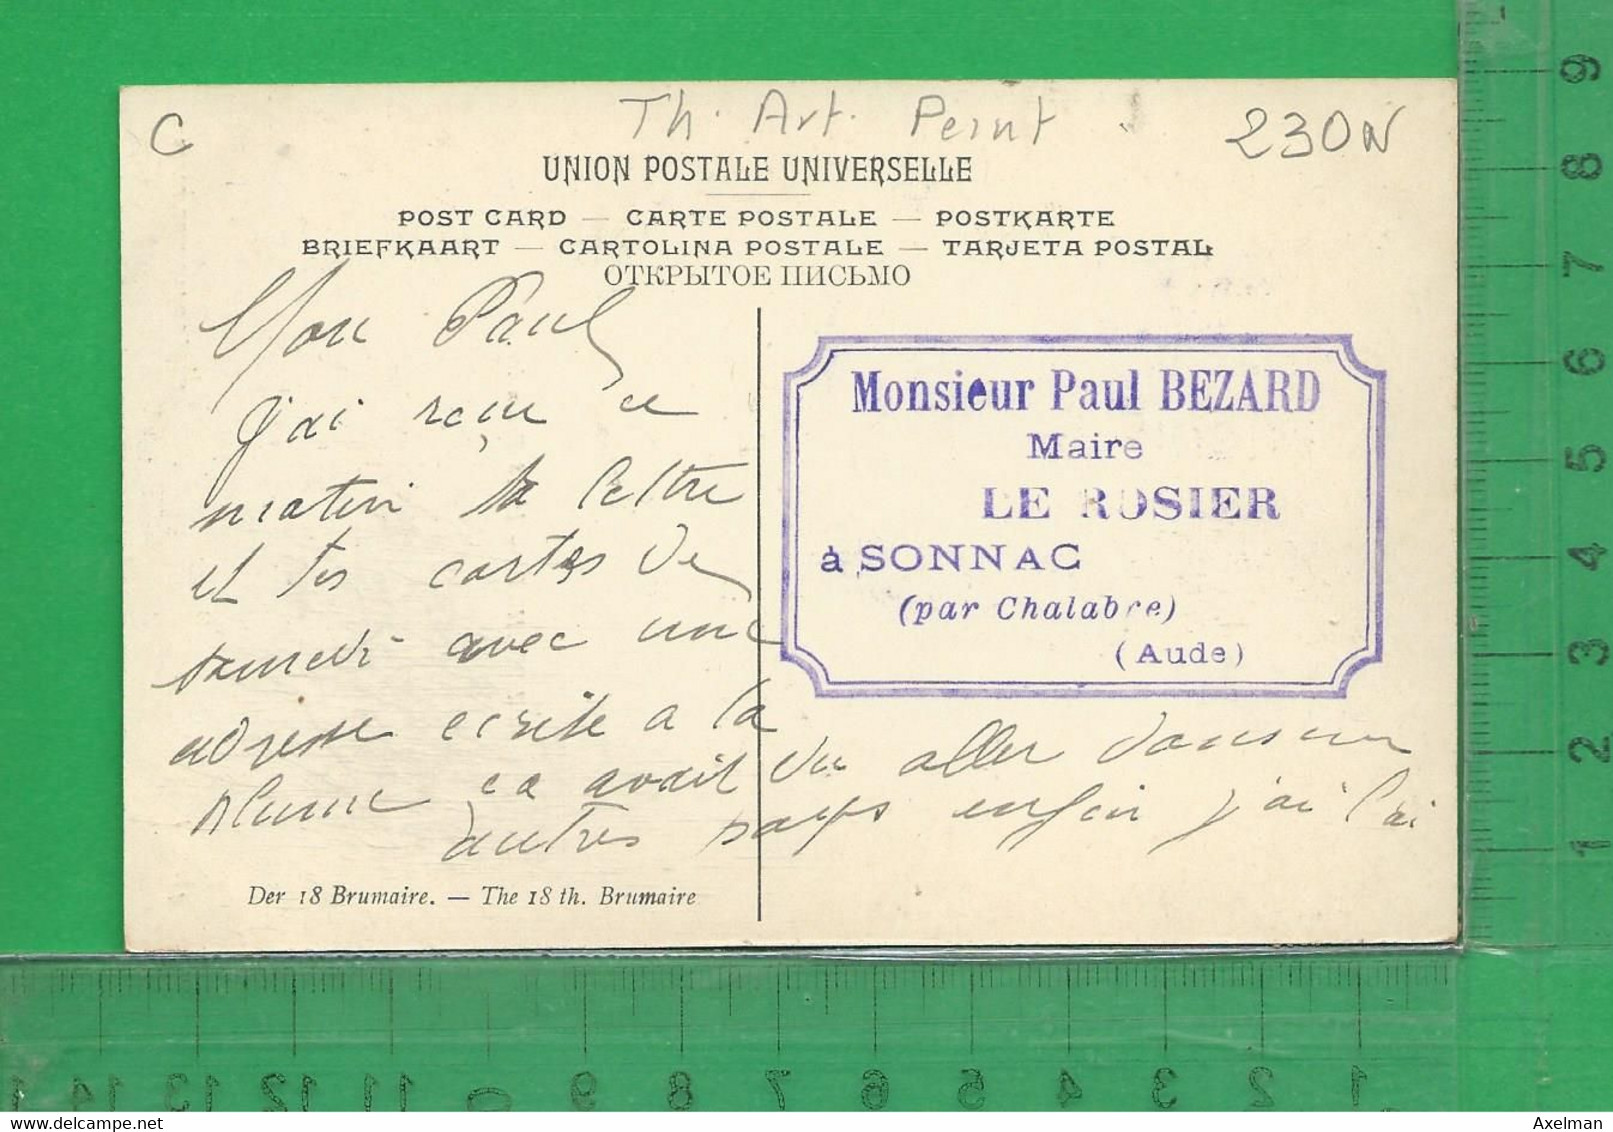 C
Th. Art. Peint
230N
UNION POSTALE UNIVERSELLE
POST CARD — CARTE POSTALE — POSTKARTE
BRIEFKAART — CARTOLINA POSTALE — TARJETA POSTAL
ОТКРЫТОЕ ПИСЬМО
Mon Paul
J'ai reçu ce
matin ta lettre
et tes cartes de
samedi avec une
adresse ecrite a la
plume ca avait du aller dans
autres pays enfin j'ai l'ai
Monsieur Paul BEZARD
Maire
LE ROSIER
à SONNAC
(par Chalabre)
(Aude)
Der 18 Brumaire. — The 18 th. Brumaire
9
8
7
6
5
4
3
2
1
14 13 12 11 10 9 8 7 6 5 4 3 2 1
delcampe.net
Axelman